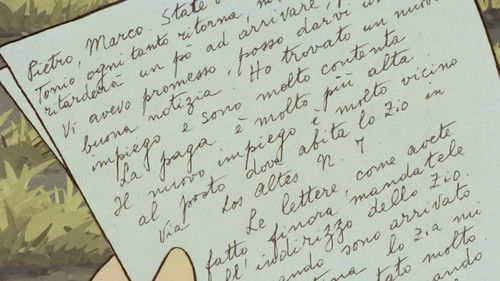 Pietro, Marco. State
Tonio ogni tanto ritorna,
ritarderà un pò ad arrivare,
Vi avevo promesso, posso darvi
buona notizia. Ho trovato un nuovo
impiego e sono molto contenta.
La paga è molto più alta.
Il nuovo impiego è molto vicino
al posto dove abita lo zio in
Via Los Altes N. 7
Le lettere, come avete
fatto finora mandatele
all'indirizzo dello Zio.
sono arrivato
lo Zia mi
molto